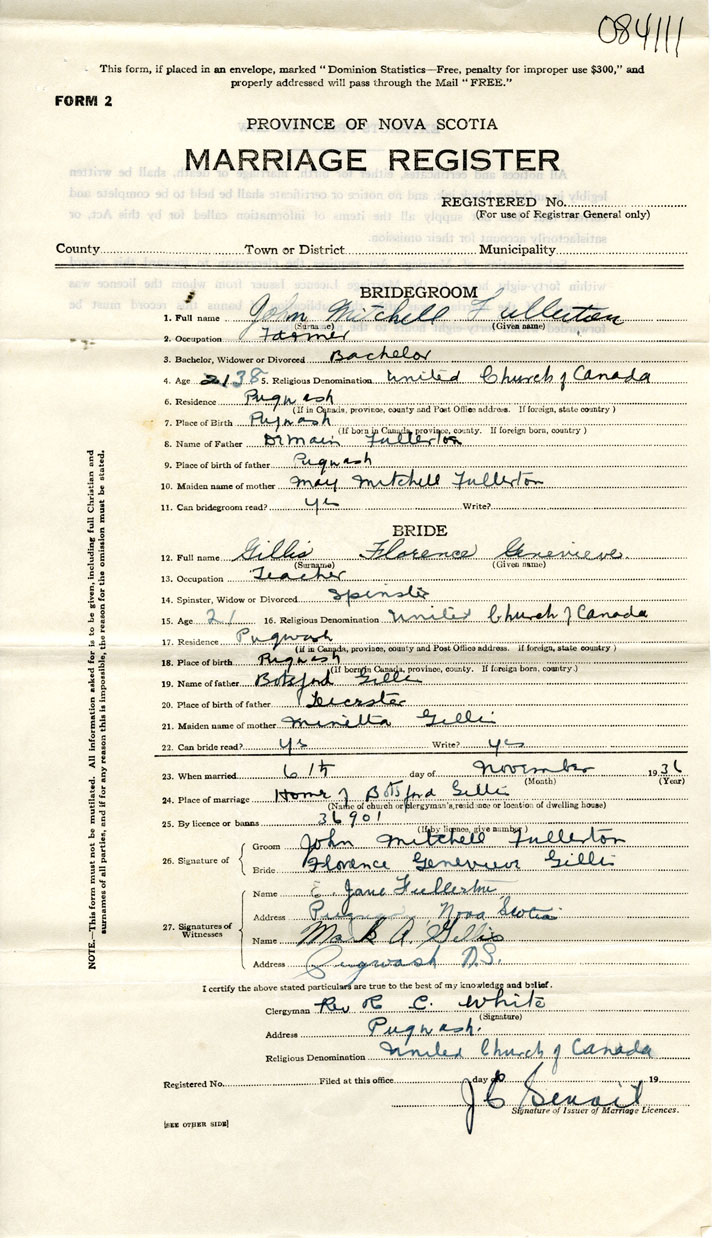 084111
This form, if placed in an envelope, marked "Dominion Statistics—Free, penalty for improper use $300," and
properly addressed will pass through the Mail "FREE."
FORM 2
PROVINCE OF NOVA SCOTIA
MARRIAGE REGISTER
REGISTERED No.
(For use of Registrar General only)
County Town or District Municipality
BRIDEGROOM
1. Full name John Mitchell Fullerton
(Surname) (Given name)
2. Occupation Farmer
3. Bachelor, Widower or Divorced Bachelor
4. Age 38 5. Religious Denomination United Church of Canada
6. Residence Pugwash
(If in Canada, province, county and Post Office address. If foreign, state country)
7. Place of Birth Pugwash
(If born in Canada, province, county. If foreign born, country)
8. Name of Father Fullerton
9. Place of birth of father Pugwash
10. Maiden name of mother May Mitchell Fullerton
11. Can bridegroom read? yes Write?
BRIDE
12. Full name Gillis Florence Genevieve
(Surname) (Given name)
13. Occupation Teacher
14. Spinster, Widow or Divorced Spinster
15. Age 21 16. Religious Denomination United Church of Canada
17. Residence Pugwash
(if in Canada, province, county and Post Office address. If foreign, state country)
18. Place of birth Pugwash
(If born in Canada, province, county. If foreign born, country.)
19. Name of father Botsford Gillis
20. Place of birth of father Leicester
21. Maiden name of mother Minetta Gillis
22. Can bride read? yes Write? yes
23. When married 6th day of November 1936
(Month) (Year)
24. Place of marriage Home of Botsford Gillis
(Name of church or clergyman's residence or location of dwelling house)
25. By licence or banns 36901
(If by licence, give number)
26. Signature of
Groom John Mitchell Fullerton
Bride Florence Genevieve Gillis
27. Signatures of Witnesses
Name E. Jane Fullerton
Address Nova Scotia
Name A. Gillis
Address Pugwash N.S.
I certify the above stated particulars are true to the best of my knowledge and belief.
Clergyman Rev R C. White
(Signature)
Address Pugwash.
Religious Denomination United Church of Canada
Registered No. Filed at this office day of 19
J C
Signature of Issuer of Marriage Licences.
[SEE OTHER SIDE]
NOTE.—This form must not be mutilated. All information asked for is to be given, including full Christian and
surnames of all parties, and if for any reason this is impossible, the reason for the omission must be stated.